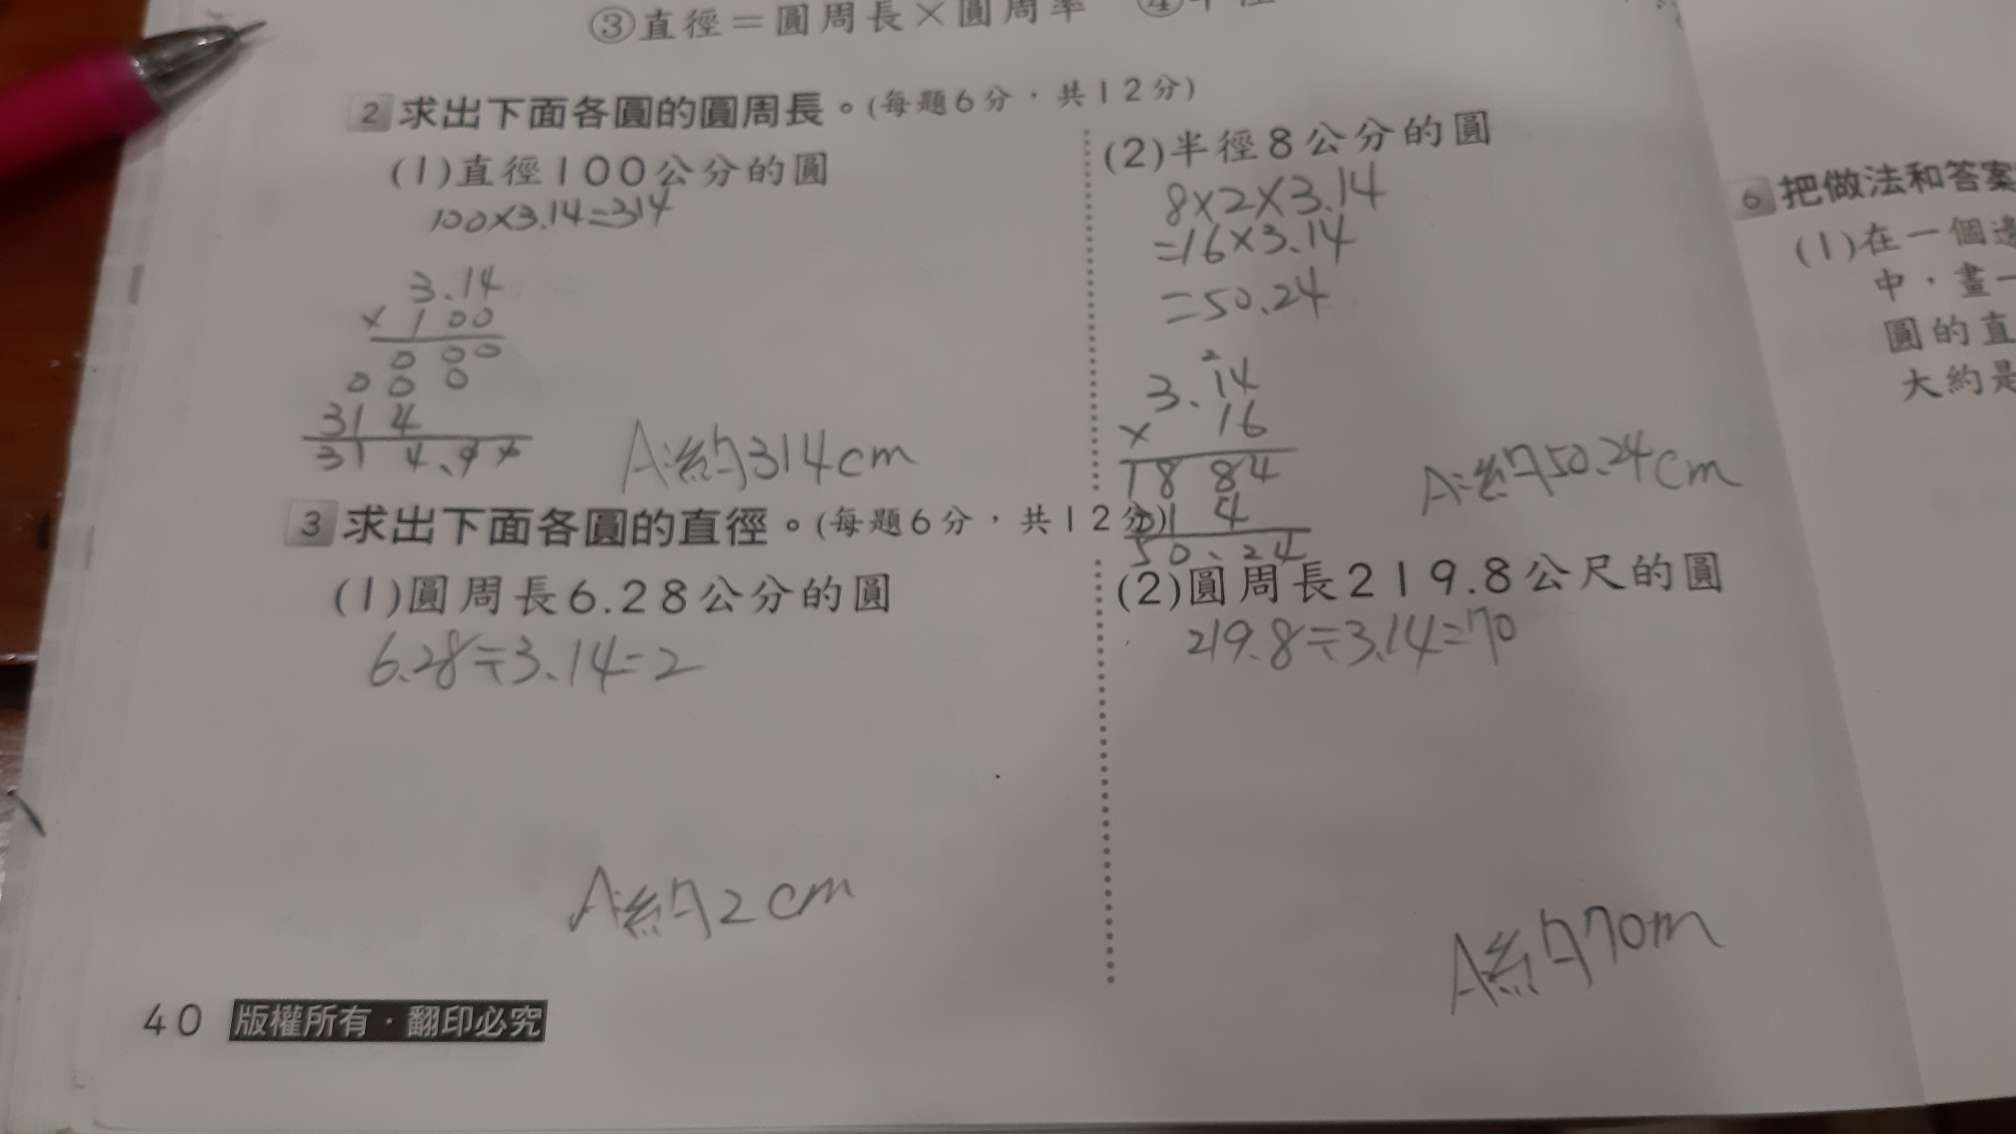 ③直徑＝圓周長×圓周率
2 求出下面各圓的圓周長。(每題6分，共12分)
(1)直徑100公分的圓
100×3.14=314
3.14
× 100
000
000
314
314.00
A:約314cm
(2)半徑8公分的圓
8×2×3.14
=16×3.14
=50.24
2
3.14
× 16
1884
314
50.24
A:約50.24cm
3 求出下面各圓的直徑。(每題6分，共12分)
(1)圓周長6.28公分的圓
6.28÷3.14=2
A:約2cm
(2)圓周長219.8公尺的圓
219.8÷3.14=70
A約70m
40 版權所有·翻印必究
6 把做法和答案
(1)在一個
中，畫一
圓的直
大約是